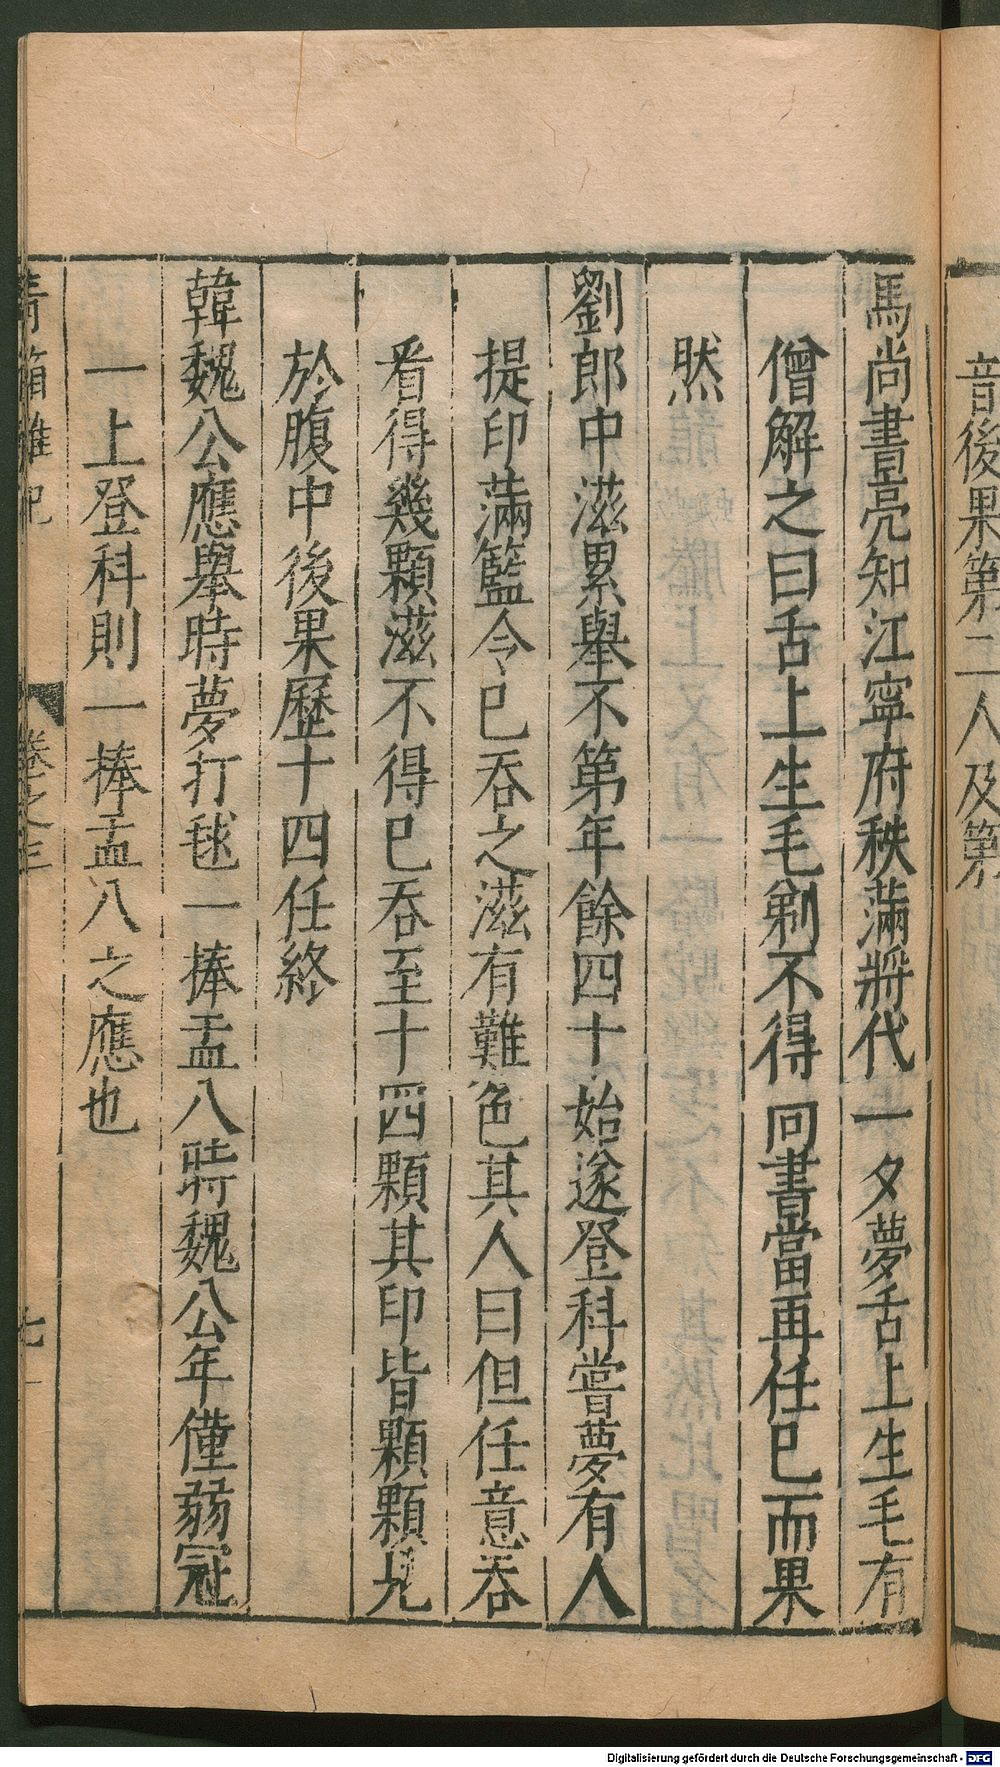 音後果第二人及第
馬尚書亮知江寧府秩滿將代一夕夢舌上生毛有
僧解之曰舌上生毛剃不得尚書當再任已而果
然
劉郎中滋累舉不第年餘四十始遂登科嘗夢有人
提印滿籃令已吞之滋有難色其人曰但任意吞
看得幾顆滋不得已吞至十四顆其印皆顆顆見
於腹中後果歷十四任終
韓魏公應舉時夢打毬一棒盂八時魏公年僅弱冠
一上登科則一棒盂八之應也
青箱雜記
卷之三
七
Digitalisierung gefördert durch die Deutsche Forschungsgemeinschaft - DFG